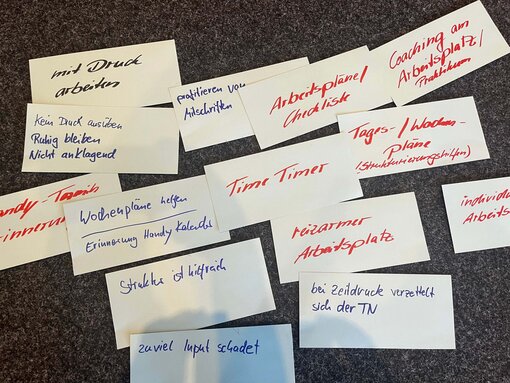 mit Druck
arbeiten
Kein Druck ausüben
Ruhig bleiben
Nicht anklagend
profitieren von
Mitschriften
Arbeitspläne/
Checkliste
Coaching am
Arbeitsplatz/
Praktikum
Tages-/Wochen-
pläne
(Strukturierungshilfen)
andy-Termin
innerun
Wochenpläne helfen
Erinnerung Handy Kalender
Time Timer
reizarmer
Arbeitsplatz
individu
Arbeits
Struktur ist hilfreich
bei Zeitdruck verzettelt
sich der TN
zuviel Input schadet